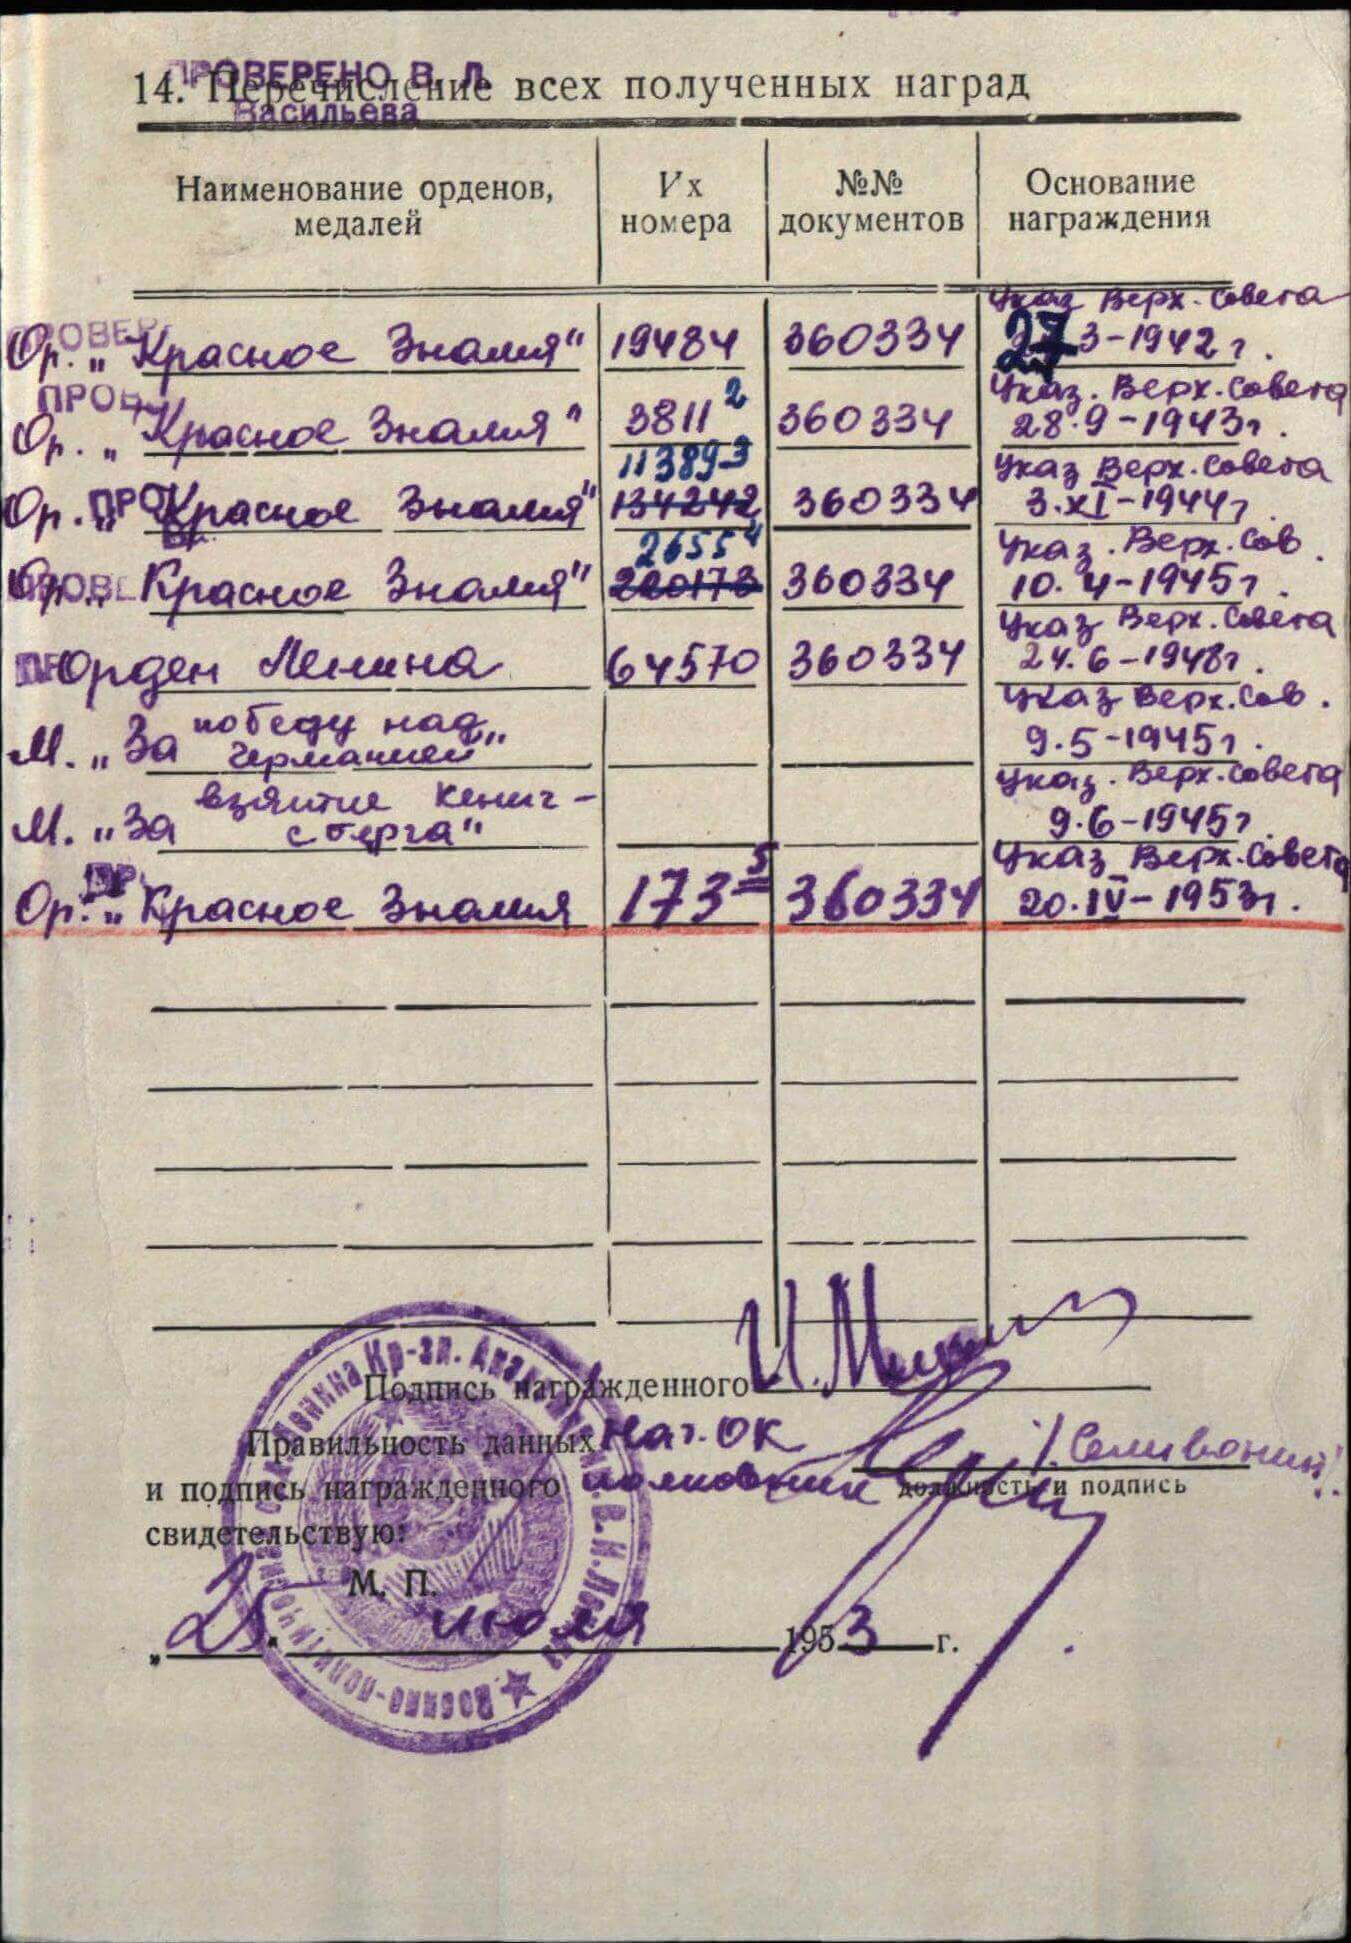 ПРОВЕРЕНО В. Л.
14. Перечисление всех полученных наград
Васильева
Наименование орденов, медалей
Их номера
№№ документов
Основание награждения
Ор. „Красное Знамя" 19484 360334 Указ Верх. Совета 27 3-1942 г.
Ор. „Красное Знамя" 3811 2 360334 Указ. Верх. Совета 28.9-1943г.
Ор. „Красное Знамя" 113893 134242 360334 Указ Верх. Совета 3.XI-1944г.
Ор. „Красное Знамя" 2655 4 220173 360334 Указ. Верх. Сов. 10.4-1945г.
Орден Ленина 64570 360334 Указ Верх. Совета 24.6-1948г.
М. „За победу над Германией" Указ Верх. Сов. 9.5-1945г.
М. „За взятие Кениг-сберга" Указ. Верх. Совета 9.6-1945г.
Ор. „Красное Знамя 173 5 360334 Указ Верх. Совета 20.IV-1953г.
Подпись награжденного И.
Правильность данных Нач. ОК
и подпись награжденного полковник должность и подпись
свидетельствую:
М. П.
„25" июля 1953 г.